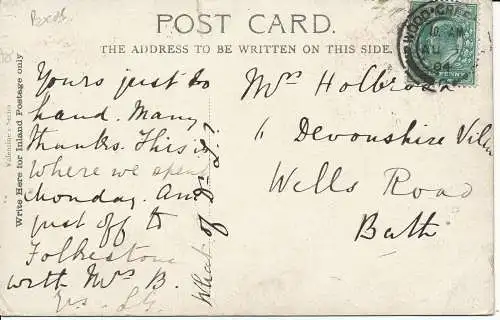 POST CARD.
THE ADDRESS TO BE WRITTEN ON THIS SIDE.
Valentine's Series
Write Here for Inland Postage only
Yours just to
hand. Many
thanks. This is
where we spent
Monday. Am
just off to
Folkestone
with Mrs B.
Yrs. L.G.
What of Dr L?
Mrs Holbrook
1 Devonshire Villas
Wells Road
Bath
AU
04
PENNY